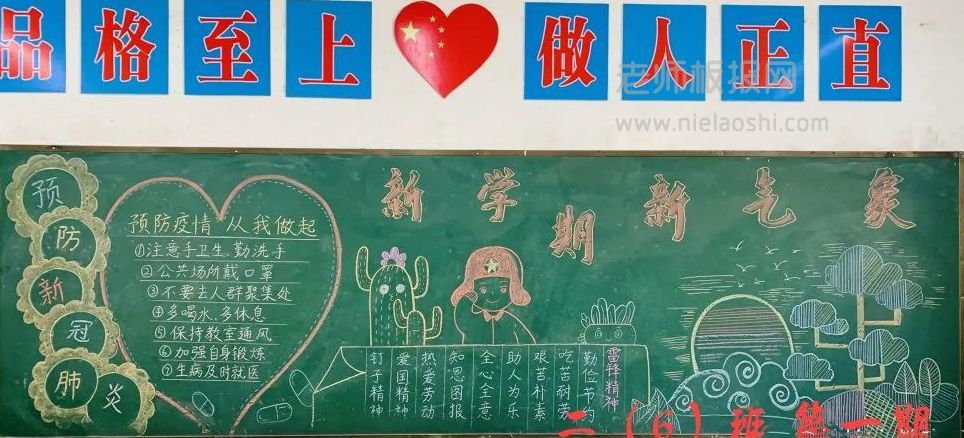 品格至上 做人正直
老师板报网
www.nielaoshi.com
新学期新气象
预防新冠肺炎
预防疫情 从我做起
①注意手卫生 勤洗手
②公共场所戴口罩
③不要去人群聚集处
④多喝水、多休息
⑤保持教室通风
⑥加强自身锻炼
⑦生病及时就医
雷锋精神
勤俭节约
吃苦耐劳
艰苦朴素
助人为乐
全心全意
知恩图报
热爱劳动
爱国精神
钉子精神
二(6)班第一期